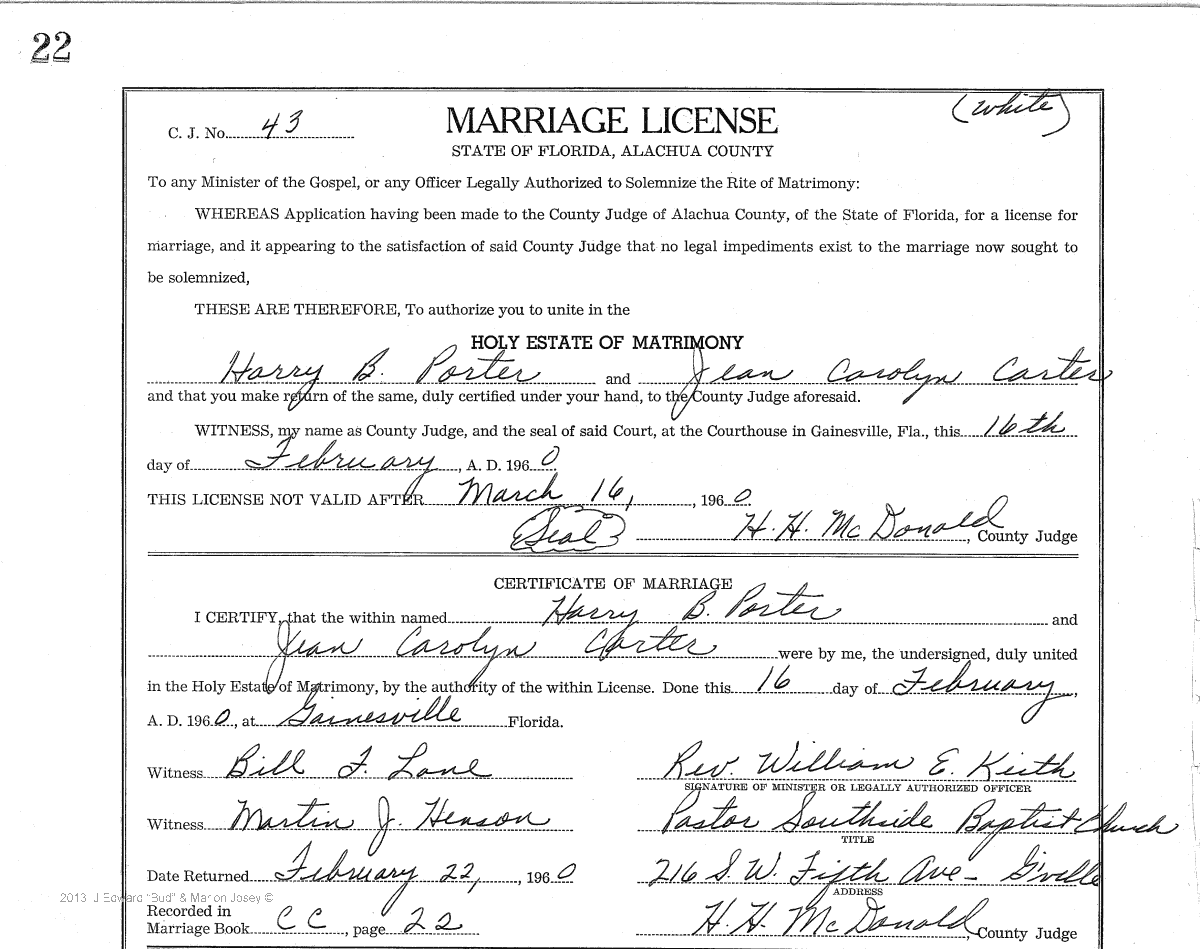 22
(white)
C. J. No. 43
MARRIAGE LICENSE
STATE OF FLORIDA, ALACHUA COUNTY
To any Minister of the Gospel, or any Officer Legally Authorized to Solemnize the Rite of Matrimony:
WHEREAS Application having been made to the County Judge of Alachua County, of the State of Florida, for a license for
marriage, and it appearing to the satisfaction of said County Judge that no legal impediments exist to the marriage now sought to
be solemnized,
THESE ARE THEREFORE, To authorize you to unite in the
HOLY ESTATE OF MATRIMONY
Harry B. Porter and Jean Carolyn Carter
and that you make return of the same, duly certified under your hand, to the County Judge aforesaid.
WITNESS, my name as County Judge, and the seal of said Court, at the Courthouse in Gainesville, Fla., this 16th
day of February, A. D. 1960
THIS LICENSE NOT VALID AFTER March 16, , 1960
(Seal) H. H. McDonald, County Judge
CERTIFICATE OF MARRIAGE
I CERTIFY, that the within named Harry B. Porter and
Jean Carolyn Carter were by me, the undersigned, duly united
in the Holy Estate of Matrimony, by the authority of the within License. Done this 16 day of February,
A. D. 1960, at Gainesville Florida.
Witness Bill F. Lane Rev. William E. Keith
SIGNATURE OF MINISTER OR LEGALLY AUTHORIZED OFFICER
Witness Martin J. Henson Pastor Southside Baptist Church
TITLE
Date Returned February 22, , 1960 216 S. W. Fifth Ave - G'ville
ADDRESS
2013 J Edward "Bud" & Marion Josey ©
Recorded in
Marriage Book CC, page 22 H. H. McDonald, County Judge